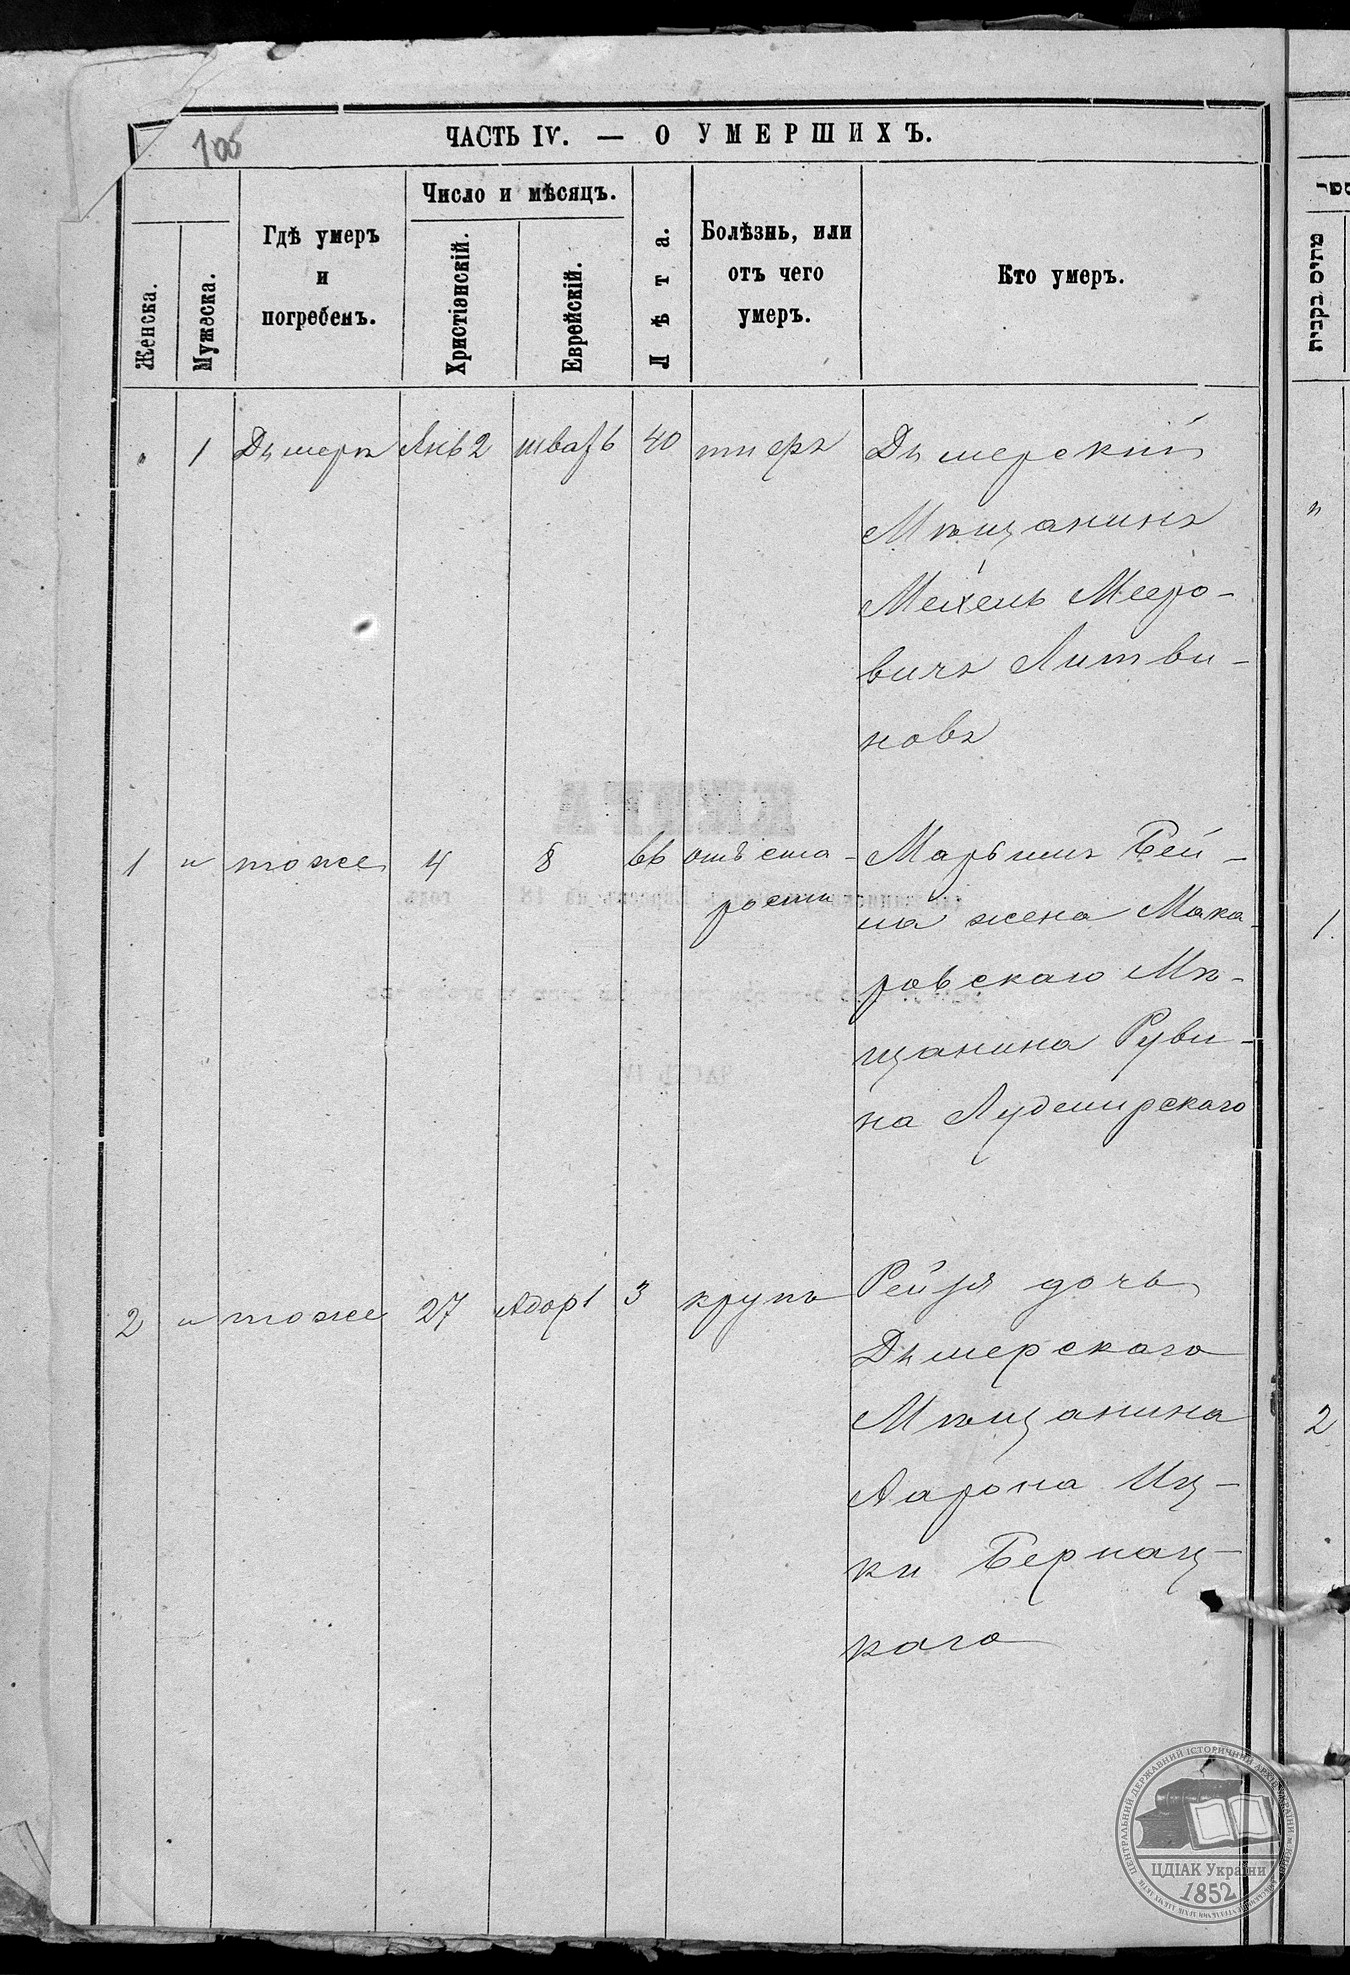 105
ЧАСТЬ IV. — О УМЕРШИХЪ.
Женска.
Мужеска.
Гдѣ умеръ
и
погребенъ.
Число и мѣсяцъ.
Христіанскій.
Еврейскій.
Лѣта.
Болѣзнь, или
отъ чего
умеръ.
Кто умеръ.
" 1 Дымеръ Янв 2 шватъ 6 40 тифъ Дымерскій
Мѣщанинъ
Мехель Мееро-
вичъ Литви-
новъ
1 " тоже 4 8 66 отъ ста- Марьимъ Бей-
рости
ла жена Мака-
ровскаго Мѣ-
щанина Руви-
на Лудмирскаго
2 " тоже 27 Адар 1 3 крупъ Рейзя дочь
Дымерскаго
Мѣщанина
Аарона Иц-
ки Бернац-
каго
КНИГА
ЧАСТЬ IV
מתים בקבית
"
1
2
ЦЕНТРАЛЬНИЙ ДЕРЖАВНИЙ ІСТОРИЧНИЙ АРХІВ УКРАЇНИ, м. КИЇВ
ЦДІАК України
1852